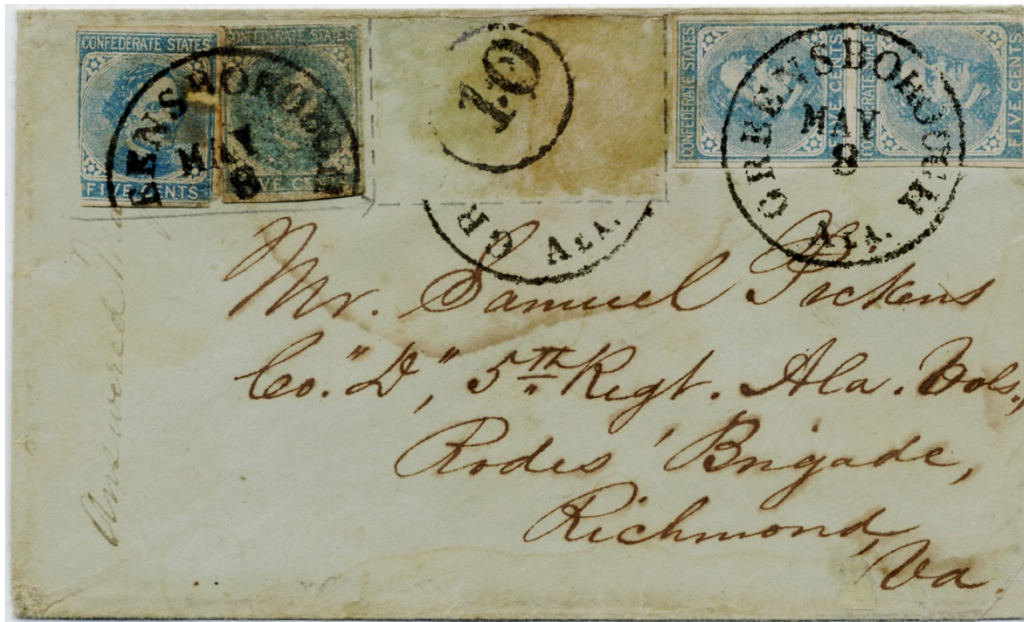 CONFEDERATE STATES
FIVE CENTS
CONFEDERATE STATES
FIVE CENTS
EENSBOROUGH
MAY
8
10
GR
ALA.
CONFEDERATE STATES
FIVE CENTS
CONFEDERATE STATES
FIVE CENTS
GREENSBOROUGH
MAY
8
ALA.
Mr. Samuel Pickens
Co. "D", 5th Regt. Ala. Vols.,
Rodes' Brigade,
Richmond,
Va.
Answered